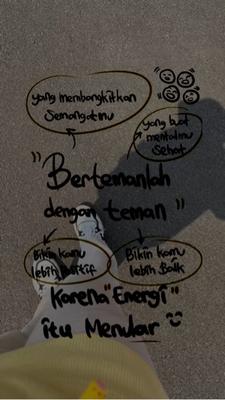 yang membangkitkan
Semangatmu
yang buat
mentalmu
Sehat
"Bertemanlah
dengan teman"
Bikin kamu
lebih Positif
Bikin kamu
lebih Baik
Karena "Energi"
itu Menular